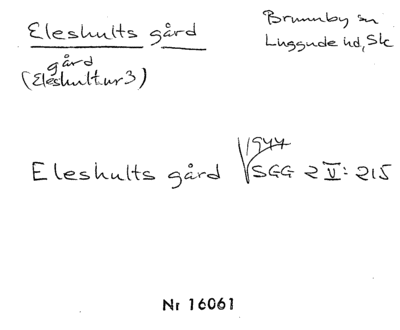 Eleshults gård
Brunnby sn
Luggude hd, Sk
gård
(Eleshult nr 3)
1944
Eleshults gård SGG 2 V: 215
Nr 16061